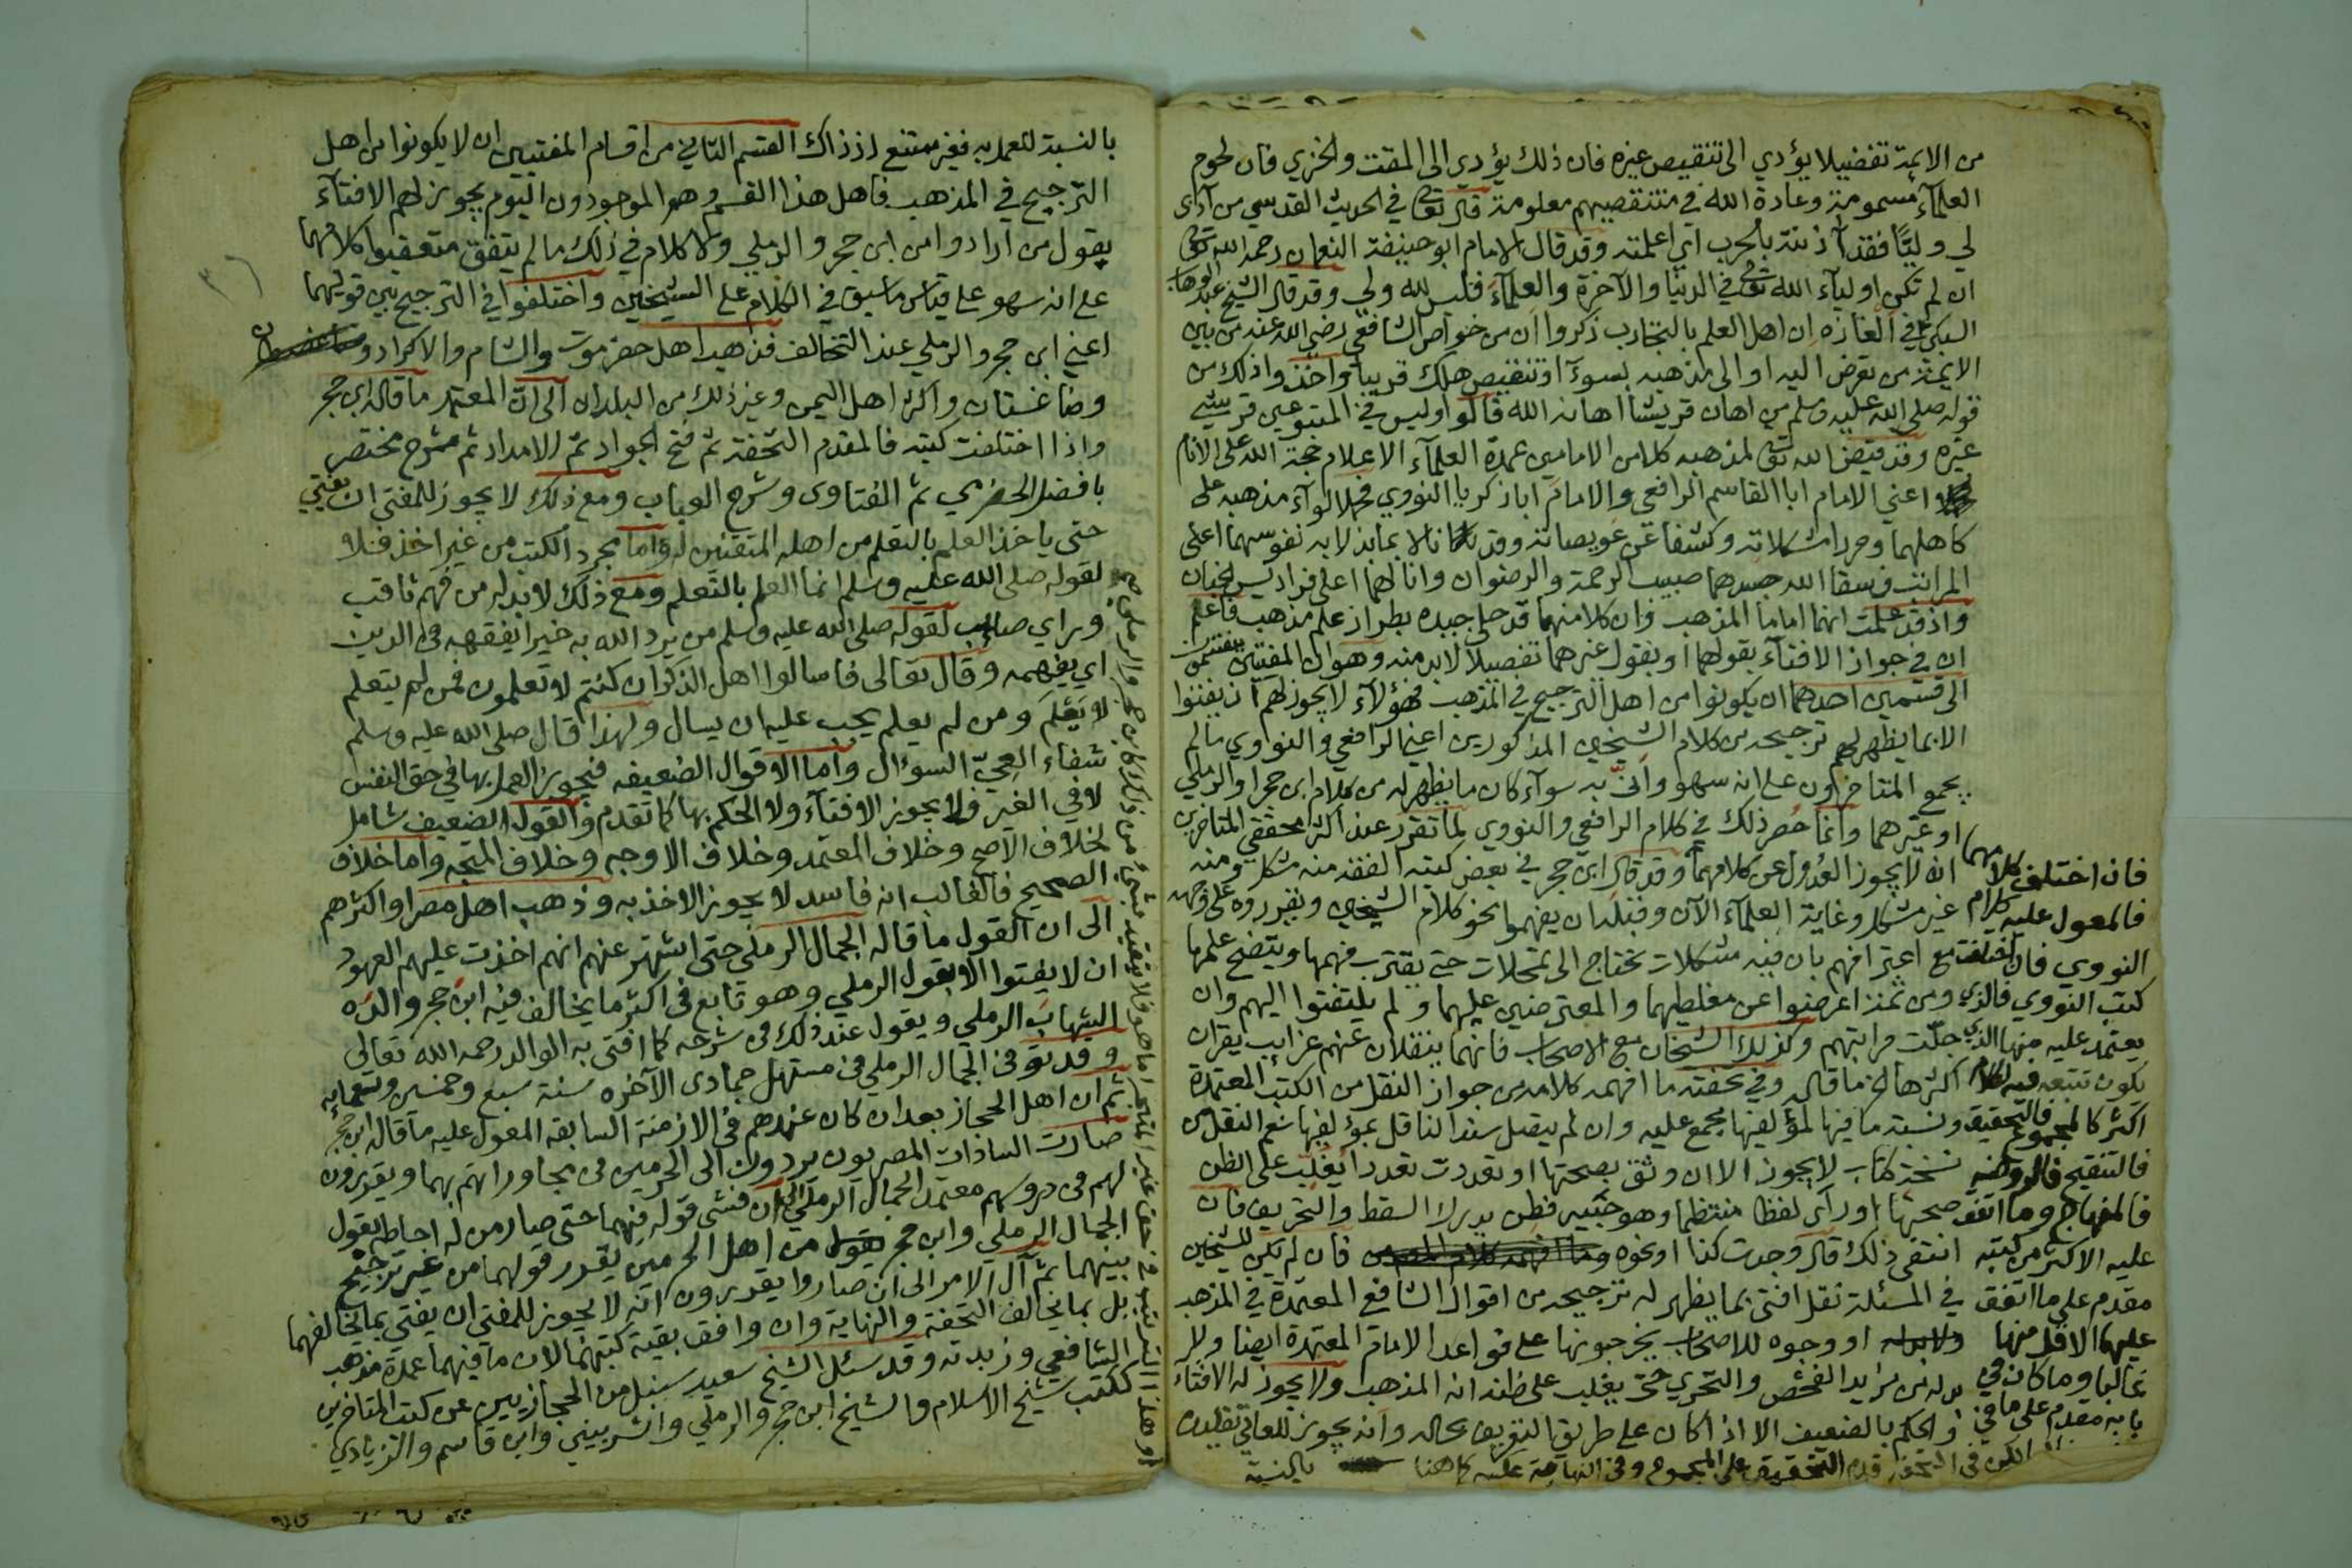 من الايمة تفضيلا يؤدي الى تنقيص غيره فان ذلك يؤدي الى المقت والخزي فان لحوم
العلمآء مسمومة وعادة الله في منتقصيهم معلومة قال تعالى في الحديث القدسي من آذى
لي وليًّا فقد آذنته بالحرب اي اعلمته وقد قال الامام ابو حنيفة النعمان رحمه الله تعالى
ان لم تكن اوليآء الله تعالى في الدنيا والآخرة والعلمآء فليس لله ولي وقد قال الشيخ عبد الوهاب
السبكي في ألغازه ان اهل العلم بالتجارب ذكروا ان من خواص الشافعي رضي الله عنه من بين
الايمة من تعرض اليه او الى مذهبه بسوء او تنقيص هلك قريبا واخذوا ذلك من
قوله صلى الله عليه وسلم من اهان قريشا اهانه الله قالوا وليس في المتبوعين قرشي
غيره وقد قيض الله تعالى لمذهبه كلا من الامامين عمدة العلمآء الاعلام حجة الله على الانام
اعني الامام ابا القاسم الرافعي والامام ابا زكريا النووي فحملا لوآء مذهبه على
كاهلهما وحررا مشكلاته وكشفا عن عويصاته وقد نالا بما بذلا به نفوسهما اعلى
المراتب فسقا الله جسدهما صبيب الرحمة والرضوان وانالهما اعلى فراديس الجنان
واذ قد علمت انهما اماما المذهب وان كلا منهما قد حلى جيده بطراز علم مذهب فاعلم
ان في جواز الافتآء بقولهما او بقول غيرهما تفصيلا لابد منه وهو ان المفتيين ينقسمون
الى قسمين احدهما ان يكونوا من اهل الترجيح في المذهب فهؤلاء لا يجوز لهم ان يفتوا
الا بما يظهر لهم ترجيحه من كلام الشيخين المذكورين اعني الرافعي والنواوي ما لم
يجمع المتاخرون على انه سهو وأنّى به سوآء كان ما يظهر له من كلام ابن حجر او الرملي
او غيرهما وانما حصر ذلك في كلام الرافعي والنووي لما تقرر عند اكثر محققي المتاخرين
انه لا يجوز العدول عن كلامهما وقد قال ابن حجر في بعض كتبه الفقه منه مشكل ومنه
غير مشكل وغاية العلمآء الآن وقبله ان يفهموا نحو كلام الشيخين ويقرروه على وجهه
مع اعترافهم بان فيه مشكلات تحتاج الى تمحلات حتى يقترب فهمها ويتضح علمها
ومن ثمة اعرضوا عن مغلطيهما والمعترضين عليهما ولم يلتفتوا اليهم وان
جلّت مراتبهم وكذلك الشيخان مع الاصحاب فانهما ينقلان عنهم غرايب يقران
اكثرها الخ ما قال وفي تحفته ما افهمه كلامه من جواز النقل من الكتب المعتمدة
ونسبة ما فيها لمؤلفيها مجمع عليه وان لم يتصل سند الناقل بمؤلفيها نعم النقل من
نسخة كتاب لا يجوز الا ان وثق بصحتها او تعددت تعددا يغلب على الظن
صحتها او رآى لفظا منتظما وهو خبير فطن يدرك السقط والتحريف فان
انتفى ذلك قال وجدت كذا او نحوه فان لم يكن للشيخين
في المسئلة نقل افتى بما يظهر له ترجيحه من اقوال الشافعي المعتمدة في المذهب
او وجوه للاصحاب يخرجونها على قواعد الامام المعتمدة ايضا ولا
بد له من مزيد الفحص والتحري حتى يغلب على ظنه انه المذهب ولا يجوز له الافتآء
والحكم بالضعيف الا اذا كان على طريق التعريف بحاله وانه يجوز للعامي تقليده
بالنسبة
فان اختلف كلامهما
فالمعول عليه كلام
النووي فان اختلفت
كتب النووي فالذي
يعتمد عليه منها الذي
يكون تتبعه فيه لكلام
اكثر كالمجموع فالتحقيق
فالتنقيح فالروضة
فالمنهاج وما اتفق
عليه الاكثر من كتبه
مقدم على ما اتفق
عليها الاقل منها
غالبا وما كان في
بابه مقدم على ما في
لكن في التحفة قدم التحقيق على المجموع وفي النهاية عكسه كما هنا
بالنسبة للعمل به فغير ممتنع اذ ذاك القسم الثاني من اقسام المفتيين ان لا يكونوا من اهل
الترجيح في المذهب فاهل هذا القسم وهم الموجودون اليوم يجوز لهم الافتآء
بقول من ارادوا من ابن حجر والرملي ولا كلام في ذلك ما لم يتفق متعقبوا كلامهما
على انه سهو على قياس ما سبق في الكلام على الشيخين واختلفوا في الترجيح بين قوليهما
اعني ابن حجر والرملي عند التخالف فذهب اهل حضرموت والشام والاكراد
وضاغستان واكثر اهل اليمن وغير ذلك من البلدان الى ان المعتمد ما قاله ابن حجر
واذا اختلفت كتبه فالمقدم التحفة ثم فتح الجواد ثم الامداد ثم شرح مختصر
بافضل الحضرمي ثم الفتاوى وشرح العباب ومع ذلك لا يجوز للمفتي ان يفتي
حتى ياخذ العلم بالتعلم من اهله المتقنين له واما مجرد الكتب من غير اخذ فلا
لقوله صلى الله عليه وسلم انما العلم بالتعلم ومع ذلك لابد له من فهم ثاقب
وراي صائب لقوله صلى الله عليه وسلم من يرد الله به خيرا يفقهه في الدين
اي يفهمه وقال تعالى فاسالوا اهل الذكر ان كنتم لا تعلمون فمن لم يتعلم
لا يَعْلَم ومن لم يعلم يجب عليه ان يسال ولهذا قال صلى الله عليه وسلم
شفاء العِيّ السؤال واما الاقوال الضعيفه فيجوز العمل بها في حق النفس
لا في الغير ولا يجوز الافتآء ولا الحكم بها كما تقدم والقول الضعيف شامل
لخلاف الاصح وخلاف المعتمد وخلاف الاوجه وخلاف المتجه واما خلاف
الصحيح فالغالب انه فاسد لا يجوز الاخذ به وذهب اهل مصر او اكثرهم
الى ان القول ما قاله الجمال الرملي حتى اشتهر عنهم انهم اخذت عليهم العهود
ان لا يفتوا الا بقول الرملي وهو تابع في اكثر ما يخالف فيه ابن حجر والده
الشهاب الرملي ويقول عند ذلك في شرحه كما افتى به الوالد رحمه الله تعالى
وقد توفي الجمال الرملي في مستهل جمادى الآخره سنة سبع وخمسين وتسعمايه
ثم ان اهل الحجاز بعد ان كان عندهم في الازمنة السابقه المعول عليه ما قاله ابن حجر
صارت السادات المصريون يردون الى الحرمين في مجاوراتهم بهما ويقررون
لهم في دروسهم معتمد الجمال الرملي الى ان فشى قوله فيهما حتى صار من له احاطه بقول
الجمال الرملي وابن حجر من اهل الحرمين يقرر قولهما من غير ترجيح
بينهما ثم آل الامر الى ان صاروا يقررون انه لا يجوز للمفتي ان يفتي بما يخالفهما
بل بما يخالف التحفة والنهاية وان وافق بقية كتبهما لان ما فيهما عمدة مذهب
الشافعي وزبدته وقد سئل الشيخ سعيد سنبل من الحجازيين عن كتب المتاخرين
ككتب شيخ الاسلام والشيخ ابن حجر والرملي والشربيني وابن قاسم والزيادي